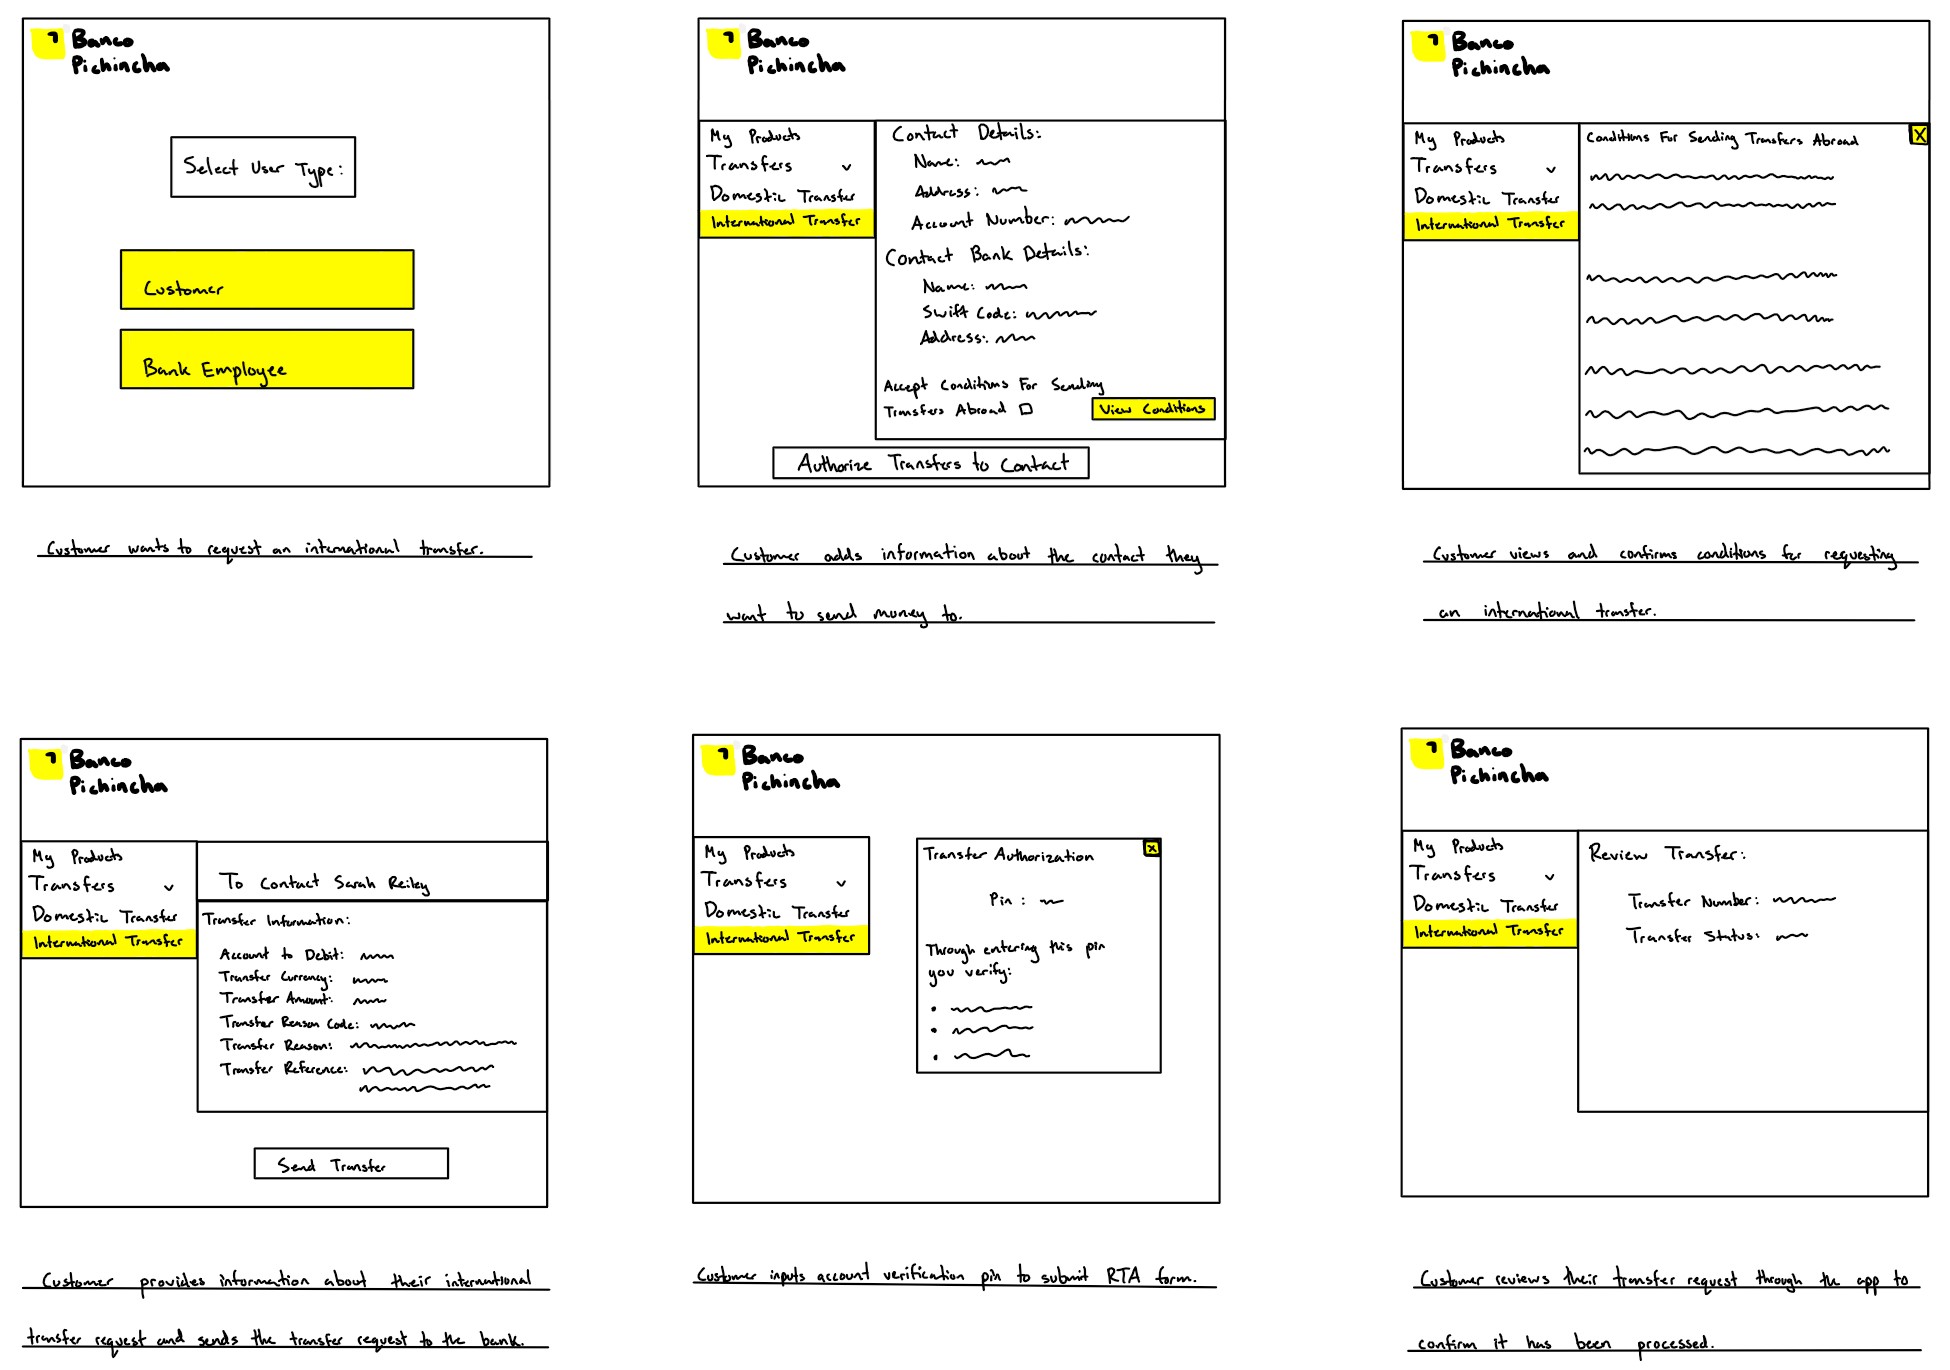 Banco
Pichincha
Select User Type:
Customer
Bank Employee
Customer wants to request an international transfer.
Banco
Pichincha
My Products
Transfers
Domestic Transfer
International Transfer
Contact Details:
Name:
Address:
Account Number:
Contact Bank Details:
Name:
Swift Code:
Address:
Accept Conditions For Sending
Transfers Abroad
View Conditions
Authorize Transfers to Contact
Customer adds information about the contact they
want to send money to.
Banco
Pichincha
My Products
Transfers
Domestic Transfer
International Transfer
Conditions For Sending Transfers Abroad
X
Customer views and confirms conditions for requesting
an international transfer.
Banco
Pichincha
My Products
Transfers
Domestic Transfer
International Transfer
To Contact Sarah Reiley
Transfer Information:
Account to Debit:
Transfer Currency:
Transfer Amount:
Transfer Reason Code:
Transfer Reason:
Transfer Reference:
Send Transfer
Customer provides information about their international
transfer request and sends the transfer request to the bank.
Banco
Pichincha
My Products
Transfers
Domestic Transfer
International Transfer
Transfer Authorization
X
Pin :
Through entering this pin
you verify:
Customer inputs account verification pin to submit RTA form.
Banco
Pichincha
My Products
Transfers
Domestic Transfer
International Transfer
Review Transfer:
Transfer Number:
Transfer Status:
Customer reviews their transfer request through the app to
confirm it has been processed.